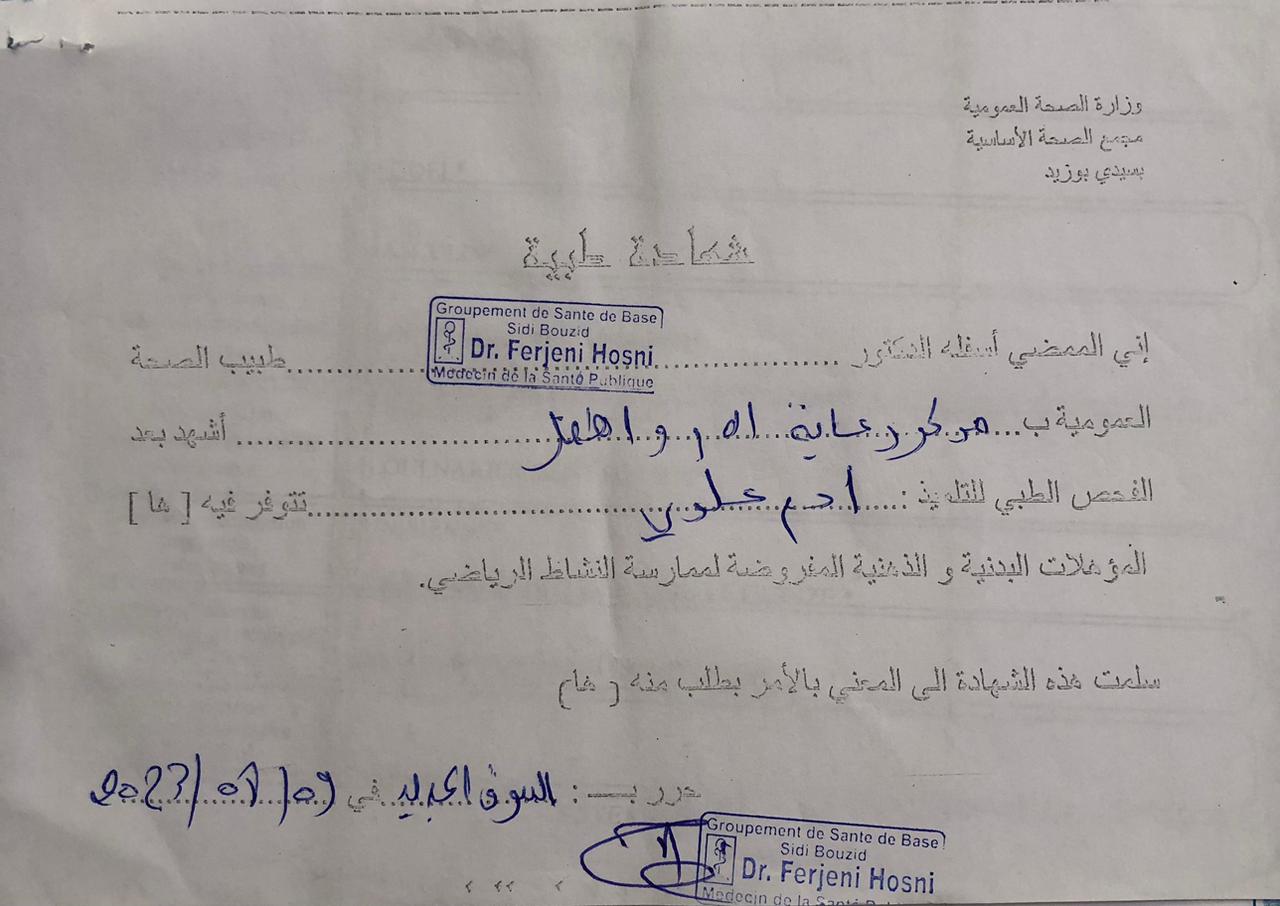 وزارة الصحة العمومية
مجمع الصحة الأساسية
بسيدي بوزيد
شهادة طبية
Groupement de Sante de Base
Sidi Bouzid
Dr. Ferjeni Hosni
Medecin de la Santé Publique
إني الممضي أسفله الدكتور ............ طبيب الصحة
العمومية ب... مركز رعاية الام و الطفل ............ أشهد بعد
الفحص الطبي للتلميذ : ... ادم علوي ............ تتوفر فيه [ ها ]
المؤهلات البدنية و الذهنية المفروضة لممارسة النشاط الرياضي.
سلمت هذه الشهادة الى المعني بالأمر بطلب منه ( ها)
حرر بـــ : السوق الجديد في 09/ /2023
Groupement de Sante de Base
Sidi Bouzid
Dr. Ferjeni Hosni
Medecin de la Santé Publique